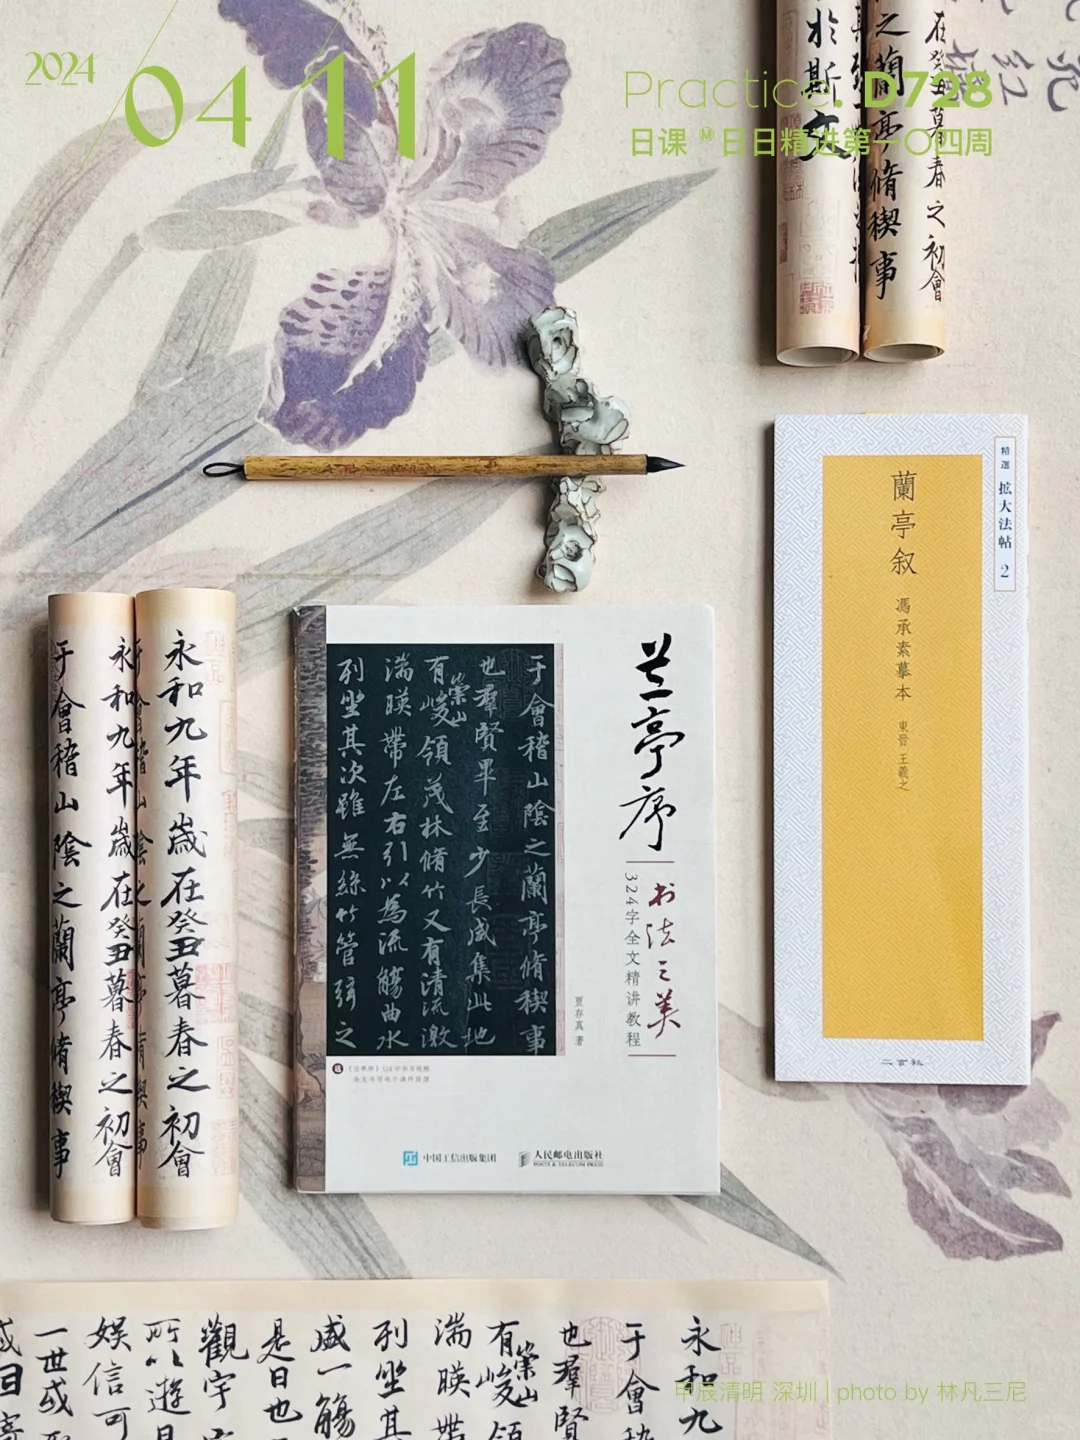 2024
04/11
Practice. D728
日课 M 日日精进第一〇四周
於斯文
之蘭亭脩稧事
在癸丑暮春之初會
精選 拡大法帖 2
蘭亭叙
馮承素摹本 東晋 王羲之
二玄社
永和九年歲在癸丑暮春之初會
永和九年歲在癸丑暮春之初會
于會稽山陰之蘭亭脩稧事
兰亭序
书法之美
324字全文精讲教程
贾存真 著
于會稽山陰之蘭亭脩稧事
也羣賢畢至少長咸集此地
有崇山峻領茂林脩竹又有清流激
湍暎帶左右引以為流觴曲水
列坐其次雖無絲竹管弦之
中国工信出版集团
人民邮电出版社
POSTS & TELECOM PRESS
永和九
于會
也羣賢
有崇山峻領
湍暎帶
列坐其
咸一觴
是日也
觀宇
所以遊
娛信可
一世或
甲辰清明 深圳 | photo by 林凡三尼